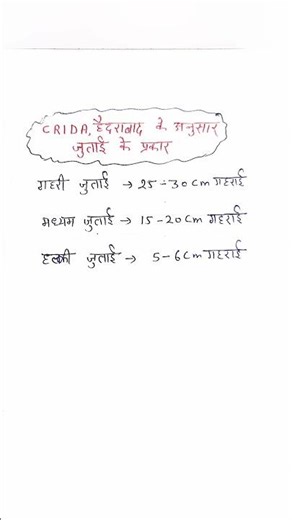 CRIDA, हैदराबाद के अनुसार
जुताई के प्रकार
गहरी जुताई → 25-30 cm गहराई
मध्यम जुताई → 15-20 cm गहराई
हल्की जुताई → 5-6 cm गहराई